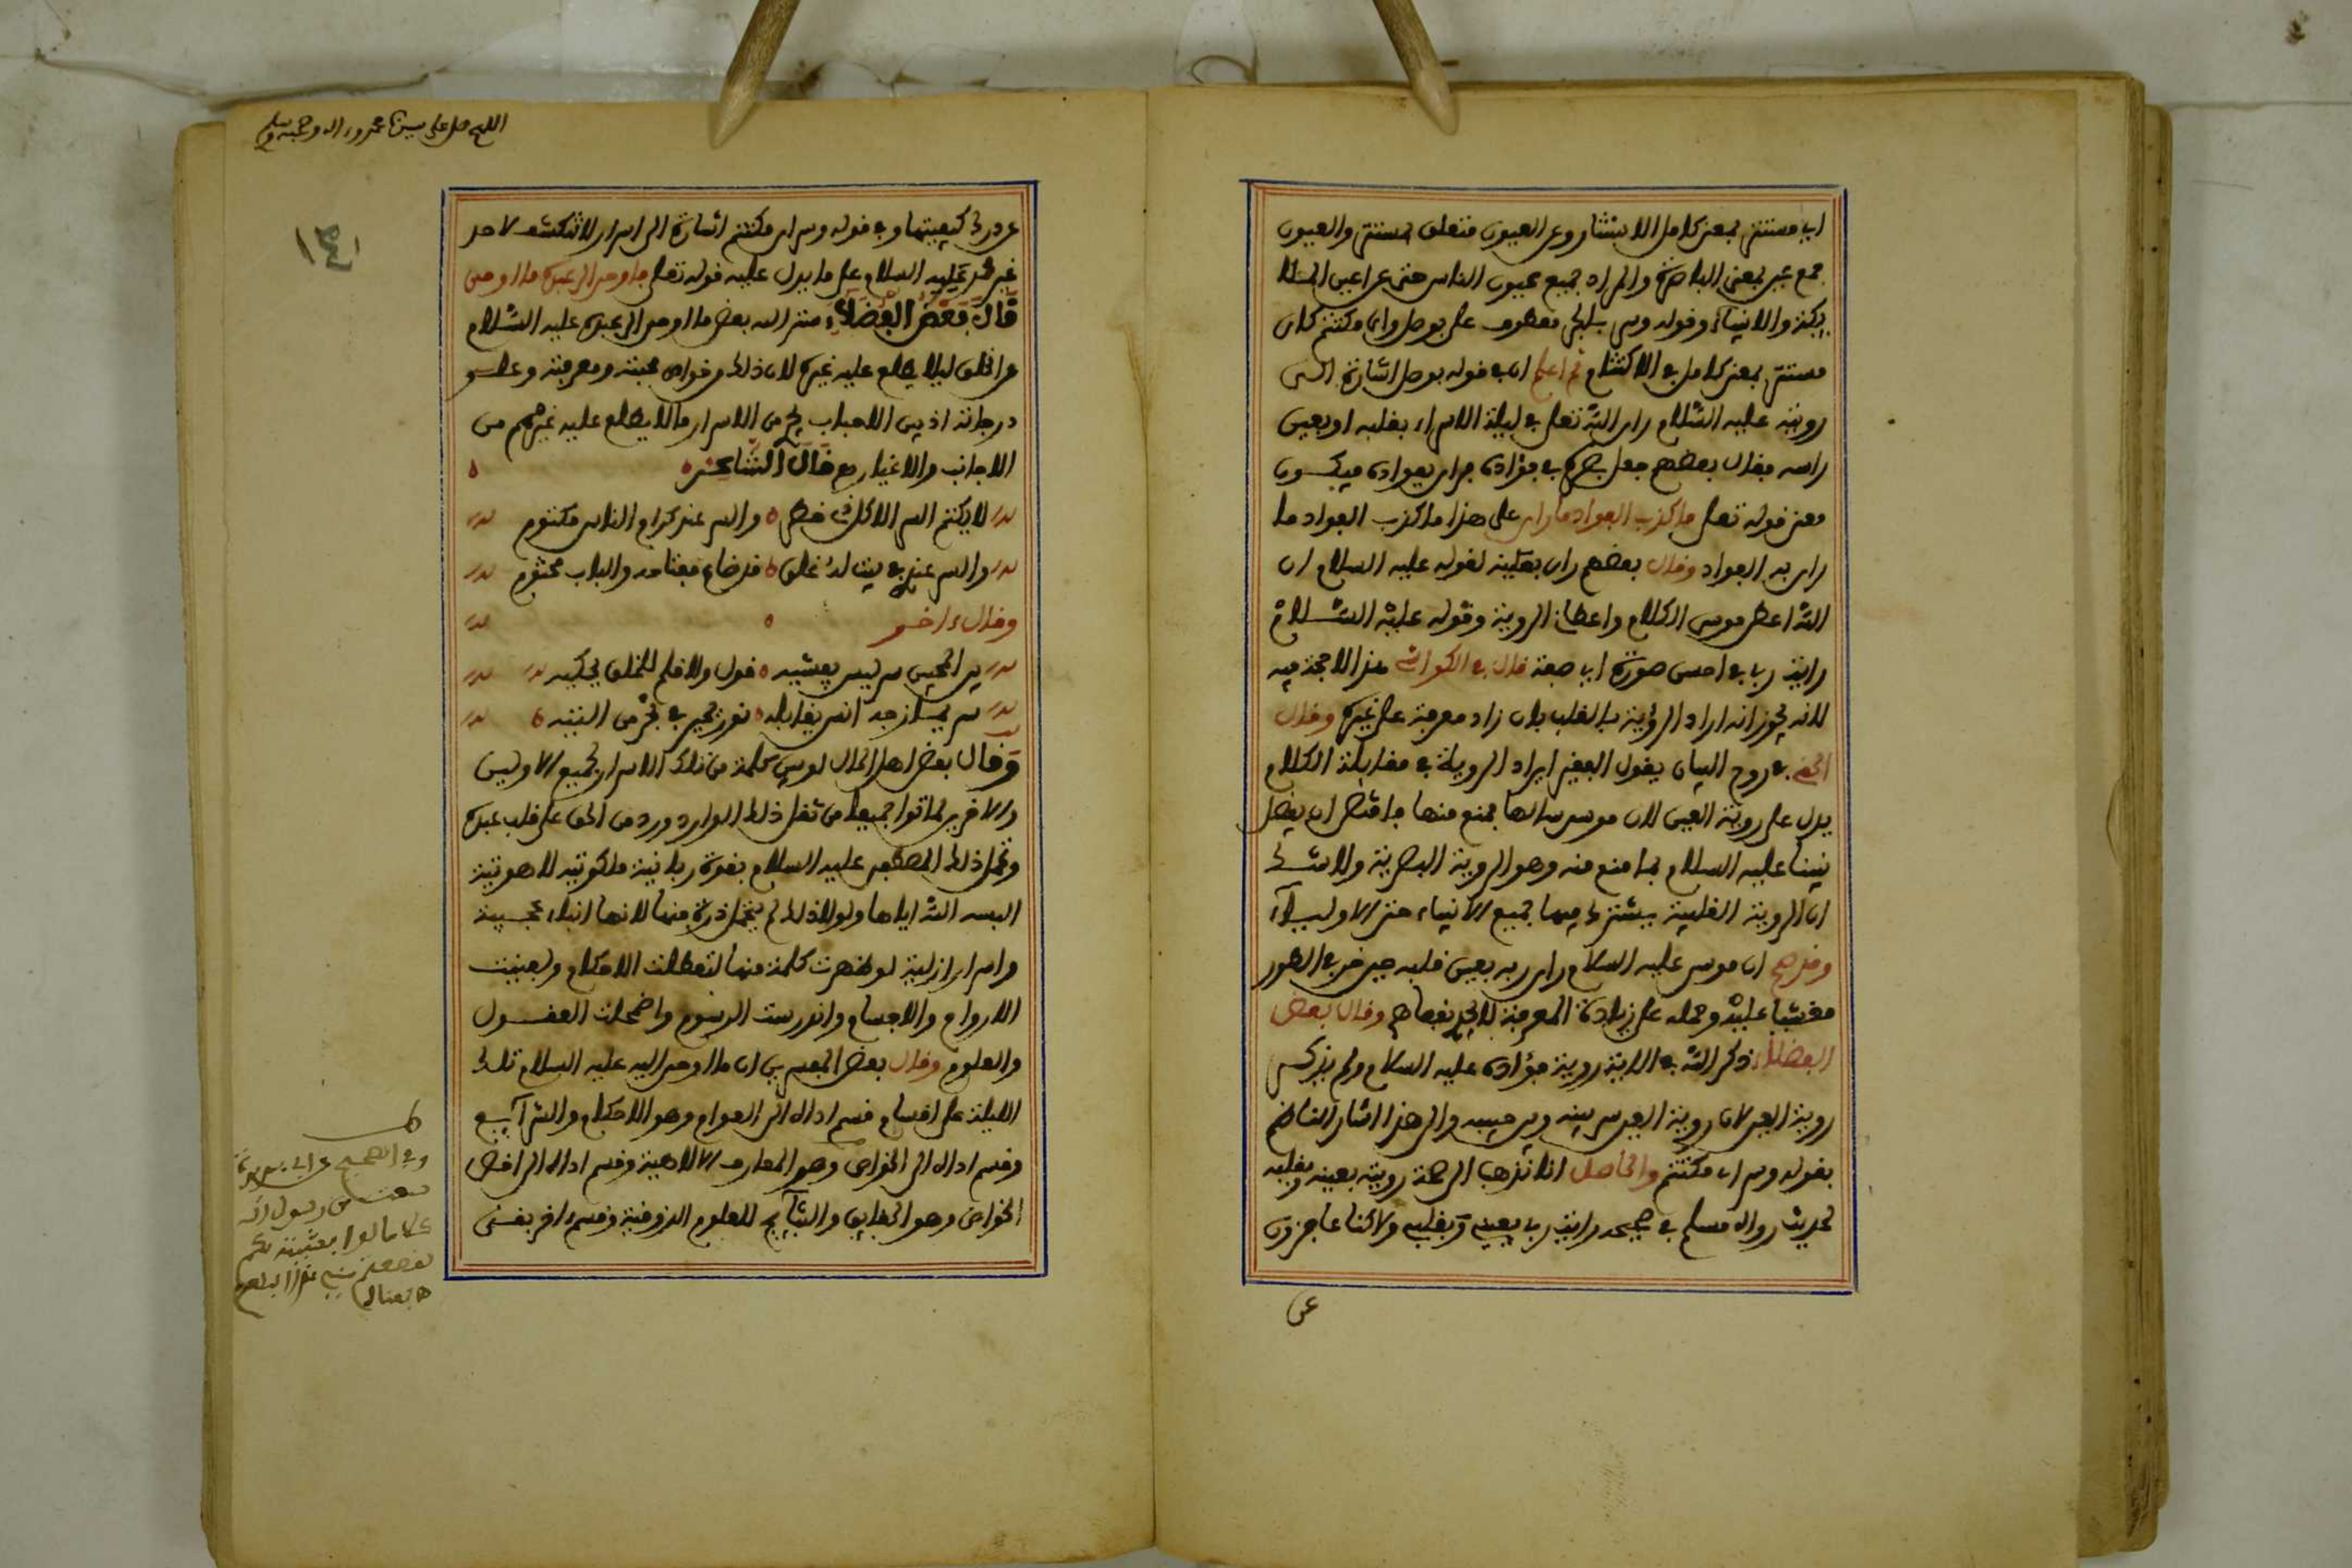 اي مستتر بمعنى كامل الاستتار وعن العيون متعلق بمستتر والعيون
جمع عين بمعنى الباصرة والمراد جميع عيون الناس حتى عن اعين الملا
يكة والانبياء وقوله وسر بالجر معطوف على بوصل واي مكتتم كاي
مستتر بمعنى كامل في الاكتتام ثم اعلم ان في قوله بوصل اشارة الى
رويته عليه السلام راى الله تعلى في ليلة الاسراء بقلبه او بعين
راسه فقال بعضهم جعل بصره في فؤاده فراى بفواده فيكون
معنى قوله تعلى ما كذب الفواد ما راى على هذا ما كذب الفواد ما
راى به الفواد وقال بعضهم راى بعينه لقوله عليه السلام ان
الله اعطى موسى الكلام واعطاني الروية وقوله عليه السلام
رايت ربي في احسن صورة اي صفة قال في الكواشي هذا لا حجة فيه
لانه يجوز انه اراد الرؤية بالقلب بان زاد معرفة على غيره وقال
الحقي في روح البيان يقول الفقير ايراد الروية في مقابلة الكلام
يدل على روية العين لان موسى سالها فمنع منها فاقتضى ان يفضل
نبينا عليه السلام بما منع منه وهو الروية البصرية ولا شك
ان الروية القلبية يشترك فيها جميع الانبياء حتى الاولياء
وقد صح ان موسى عليه السلام راى ربه بعين قلبه حين خر في الطور
مغشيا عليه وحمله على زيادة المعرفة لا يجدي نفعا هم وقال بعض
الفضلاء ذكر الله في الاية روية فؤاده عليه السلام ولم يذكر
روية العين لان روية العين سر بينه وبين حبيبه والى هذا اشار الناظم
بقوله وسر اي مكتتم والحاصل اننا نذهب الى صحة رويته بعينه وبقلبه
لحديث رواه مسلم في صحيحه رايت ربي بعيني وبقلبي ولاكننا عاجزون
عن
اللهم صل على سيدنا محمد واله وصحبه وسلم
١٣٤
عن درك كيفيتها وفي قوله وسر اي مكتتم اشارة الى اسرار لا تنكشف لاحد
غيره عليه السلام على ما يدل عليه قوله تعلى فاوحى الى عبده ما اوحى
قال بعض الفضلاء ستر الله بعض ما اوحى الى عبده عليه السلام
عن الخلق ليلا يطلع عليه غيره لان ذلك من خواص محبته ومعرفته وعلو
درجاته اذ بين الاحباب يجري من الاسرار ما لا يطلع عليه غيرهم من
الاجانب والاغيار قال الشاعر
لا يكتم السر الا كل ذي خطر والسر عند كرام الناس مكتوم
والسر عندي في بيت له غلق قد ضاع مفتاحه والباب مختوم
وقال ءاخر
بين المحبين سر ليس يفشيه قول ولا قلم للخلق يحكيه
سر يمازجه انس يقابله نور تحير في بحر من التيه
وقال بعض اهل الحال لو بين كلمة من تلك الاسرار لجميع الاولين
والاخرين لماتوا جميعا من ثقل ذلك الوارد ورد من الحق على قلب عبده
وتحمل ذلك المصطفى عليه السلام بقوة ربانية ملكوتيه لاهوتية
البسه الله اياها ولولا ذلك لم يتحمل ذرة منها لانها انباء عجيبة
واسرار ازلية لو ظهرت كلمة منها لتعطلت الاحكام ولفنيت
الارواح والاجسام واندرست الرسوم واضمحلت العقول
والعلوم وقال بعض المفسرين ان ما اوحى اليه عليه السلام تلك
الليلة على اقسام قسم اداه الى العوام وهو الاحكام والشرايع
وقسم اداه الى الخواص وهو المعارف الالاهية وقسم اداه الى اخص
الخواص وهو الحقايق والنتايج للعلوم الذوقية وقسم ءاخر بقي
ط
وفي الصحيح عن ابي
من رسول الله